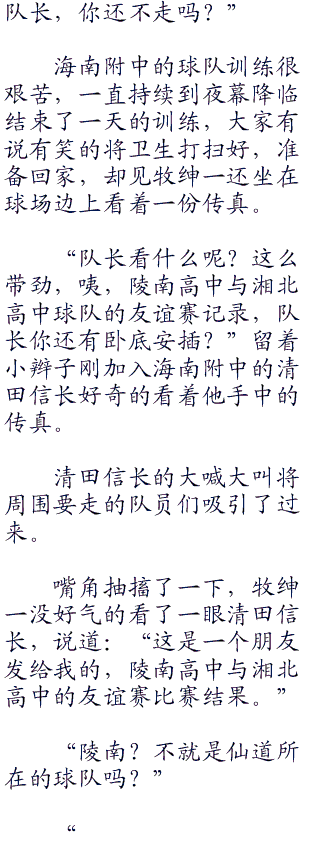 队长，你还不走吗？”
海南附中的球队训练很
艰苦，一直持续到夜幕降临
结束了一天的训练，大家有
说有笑的将卫生打扫好，准
备回家，却见牧绅一还坐在
球场边上看着一份传真。
“队长看什么呢？这么
带劲，咦，陵南高中与湘北
高中球队的友谊赛记录，队
长你还有卧底安插？”留着
小辫子刚加入海南附中的清
田信长好奇的看着他手中的
传真。
清田信长的大喊大叫将
周围要走的队员们吸引了过
来。
嘴角抽搐了一下，牧绅
一没好气的看了一眼清田信
长，说道：“这是一个朋友
发给我的，陵南高中与湘北
高中的友谊赛比赛结果。”
“陵南？不就是仙道所
在的球队吗？”
“